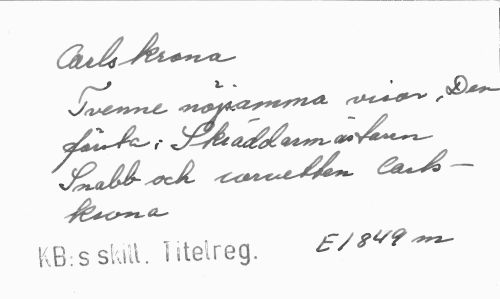 Carlskrona
Tvenne nöjsamma visor, Den
första: Skräddarmästaren
Snabb och corvetten Carls-
krona
KB:s skill. Titelreg.
E1849m